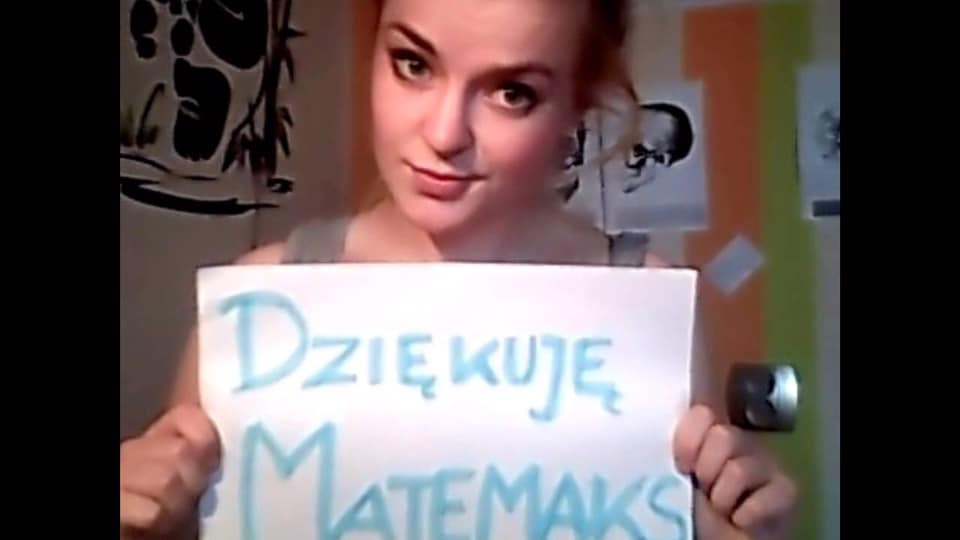 DZIĘKUJĘ
MATEMAKS